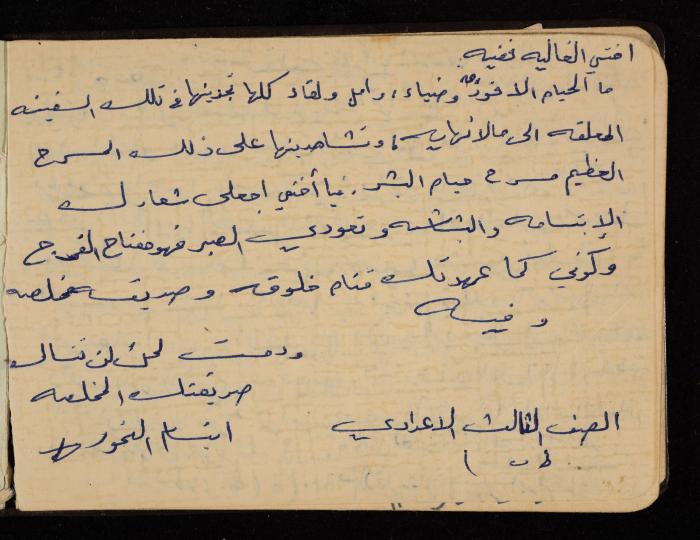 اختي الغاليه فضيه
ما الحياه الا فوز وضياء، وامل ولقاء كلها تجدينها في تلك السفينه
المعلقه الى مالانهايه، وتشاهدينها على ذلك المسرح
العظيم مسرح حياه البشر. فيا أختي اجعلي شعارك
الابتسامه والبشاشه وتعودي الصبر فهو مفتاح الفرج
وكوني كما عهدتك فتاه خلوقه وصديقه مخلصه
وفيه
ودمت لمن لن تنساك
صديقتك المخلصه
الصف الثالث الاعدادي ابتسام